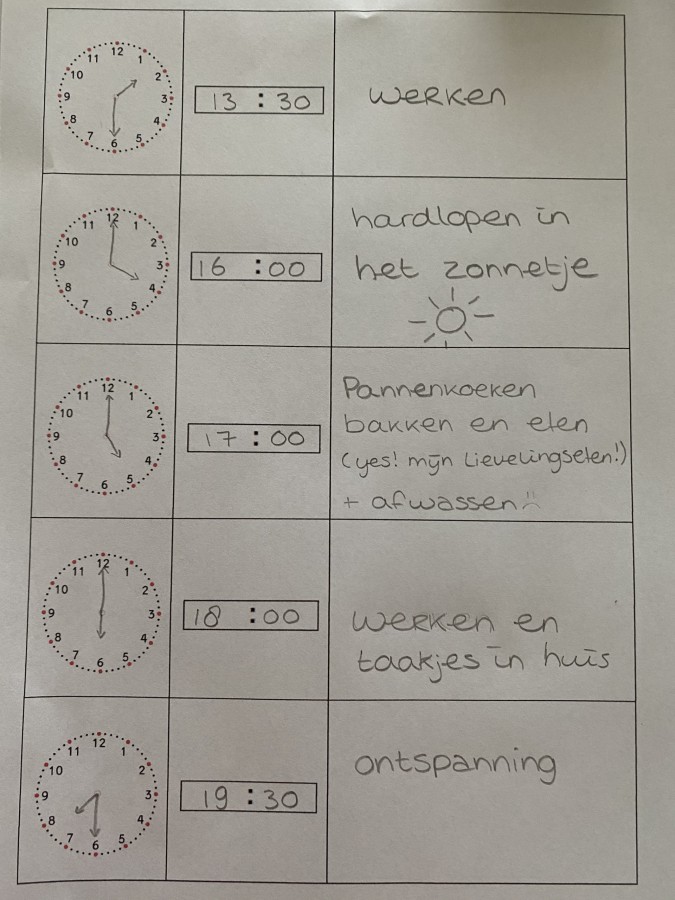 12 1 2 3 4 5 6 7 8 9 10 11
13 : 30
werken
12 1 2 3 4 5 6 7 8 9 10 11
16 : 00
hardlopen in
het zonnetje
12 1 2 3 4 5 6 7 8 9 10 11
17 : 00
Pannenkoeken
bakken en eten
(yes! mijn lievelingseten!)
+ afwassen :(
12 1 2 3 4 5 6 7 8 9 10 11
18 : 00
werken en
taakjes in huis
12 1 2 3 4 5 6 7 8 9 10 11
19 : 30
ontspanning